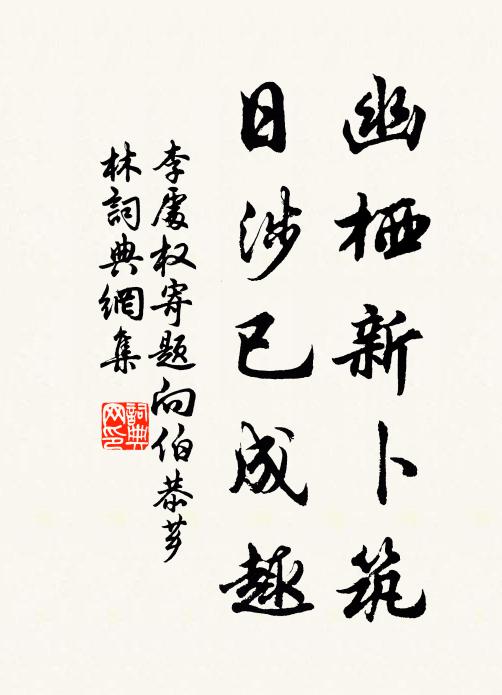 幽栖新卜筑
日涉已成趣
李处权寄题向伯恭芗
林词典网集
词典网印